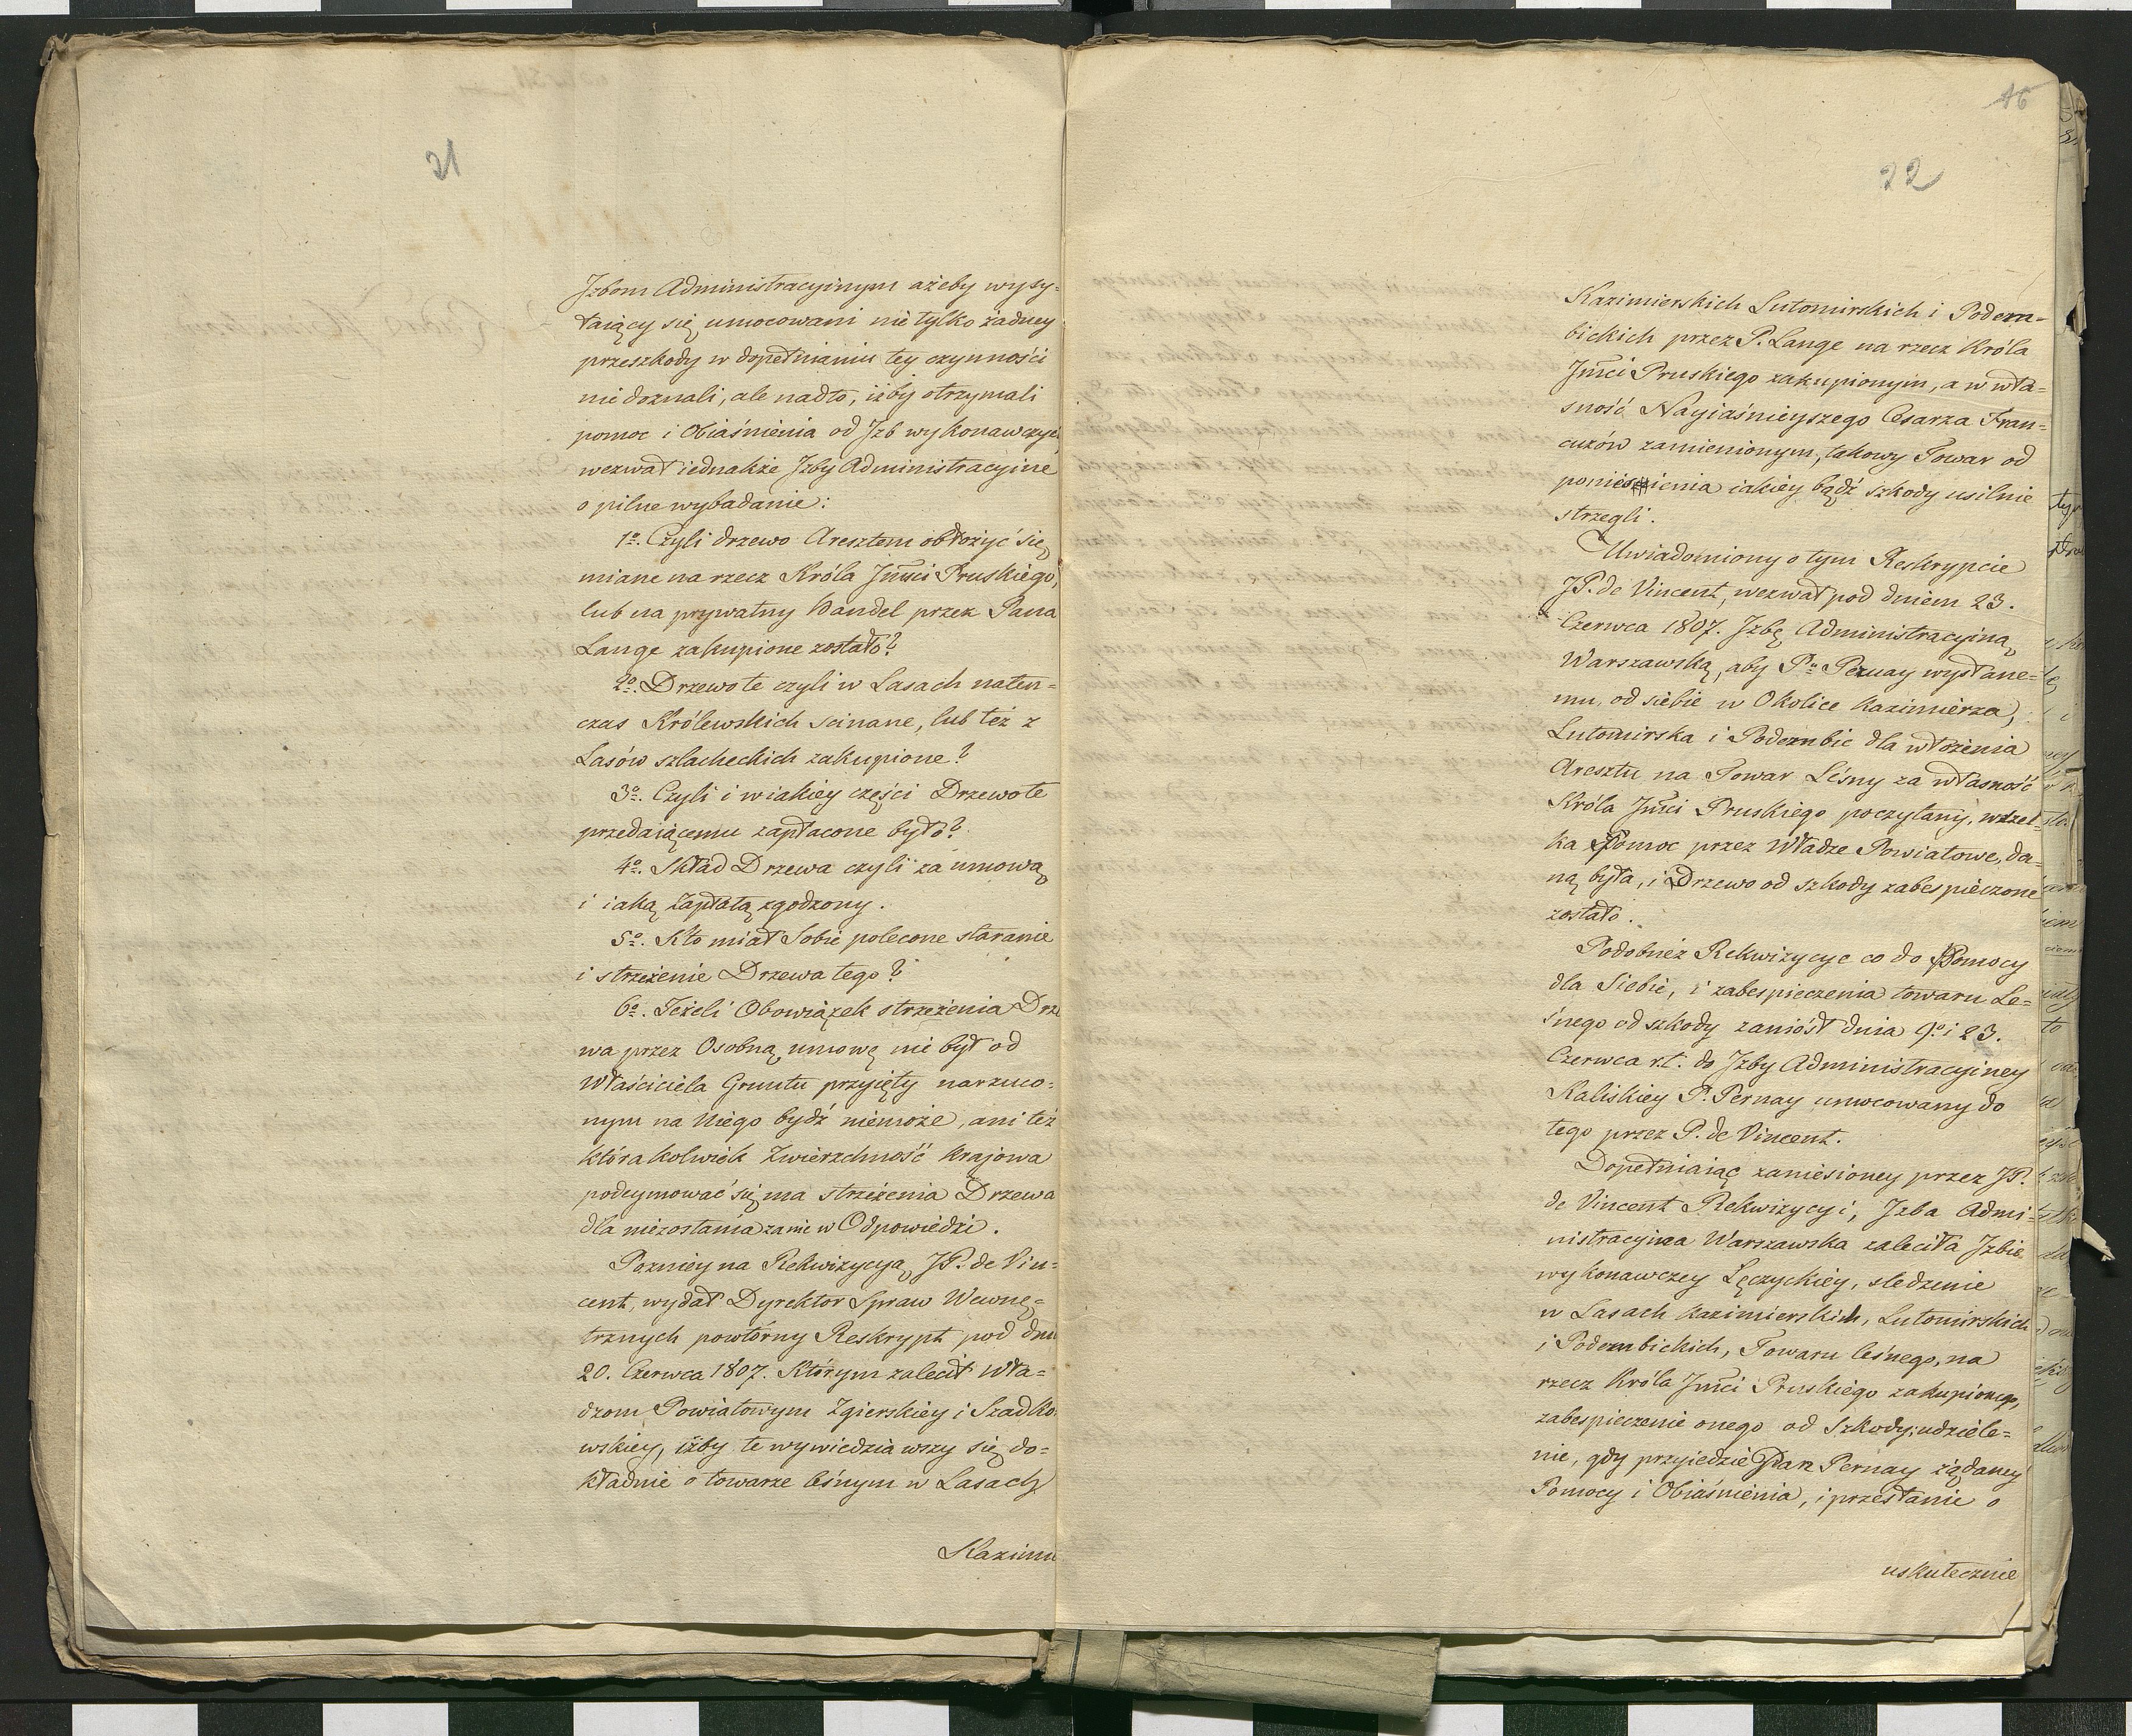 21
Jzbom Administracyinym ażeby wysy-
łaiący się umocowani nie tylko żadney
przeszkody w dopełnianiu tey czynności
nie doznali, ale nadto, iżby otrzymali
pomoc i Obiaśnienia od Jzb wykonawczych
wezwał iednakże Jzby Administracyine
o pilne wybadanie:
1º. Czyli drzewo Aresztem obłożyć się
miane na rzecz Króla Jmci Pruskiego,
lub na prywatny Handel przez Pana
Lange zakupione zostało?
2º. Drzewo te czyli w Lasach naten-
czas Królewskich scinane, lub też z
Lasów szlacheckich zakupione?
3º. Czyli i w iakiey części Drzewo te
przedaiącemu zapłacone było?
4º. Skład Drzewa czyli za umową
i iaką Zapłatą zgodzony.
5º. Kto miał Sobie polecone staranie
i strzeżenie Drzewa tego?
6º. Jeżeli Obowiązek strzeżenia Drze
wa przez Osobną umowę nie był od
Właściciela Gruntu przyięty narzuco-
nym na Niego bydź niemoże, ani też
którakolwiek Zwierzchność Krajowa
podeymować się ma strzeżenia Drzewa
dla niezostania zanie w Odpowiedzi.
Pozniey na Rekwizycyą JP. de Vin-
cent, wydał Dyrektor Spraw Wewnę-
trznych powtórny Reskrypt pod dnm
20. Czerwca 1807. Którym zalecił Wła-
dzom Powiatowym Zgierskiey i Szadko-
wskiey, iżby te wywiedziawszy się do-
kładnie o towarze leśnym w Lasach
Kazimi
16
22
Kazimierskich Lutomirskich i Podem-
bickich przez P. Lange na rzecz Króla
Jmci Pruskiego zakupionym, a w wła-
sność Nayiaśnieyszego Cesarza Fran-
cuzów zamienionym, takowy Towar od
poniesienia iakiey bądź szkody usilnie
strzegli.
Uwiadomiony o tym Reskrypcie
JP. de Vincent, wezwał pod dniem 23.
Czerwca 1807. Jzbę Administracyiną
Warszawską, aby Pu Pernay wysłane-
mu, od siebie w Okolice Kazimierza,
Lutomirska i Podembic dla włożenia
Aresztu na Towar Leśny za własność
Króla Jmci Pruskiego poczytany, wszel-
ka Pomoc przez Władze Powiatowe, da-
ną była, i Drzewo od szkody zabespieczone
zostało.
Podobnież Rekwizycye co do Pomocy
dla Siebie, i zabespieczenia towaru Le-
śnego od szkody zaniósł dnia 9º i 23.
Czerwca r.t. do Jzby Administracyiney
Kaliskiey P. Pernay umocowany do
tego przez P. de Vincent.
Dopełniaiąc zaniesioney przez JP.
de Vincent Rekwizycyi, Jzba Admi-
nistracyina Warszawska zaleciła Jzbie
wykonawczey Łęczyckiey, sledzenie
w Lasach Kazimierskich, Lutomirskich
i Podembickich, Towaru leśnego, na
rzecz Króla Jmci Pruskiego zakupionego,
zabespieczenie onego od Szkody; udziele-
nie, gdy przyiedzie Pan Pernay żądaney
Pomocy i Obiaśnienia, i przesłanie o
uskutecznie